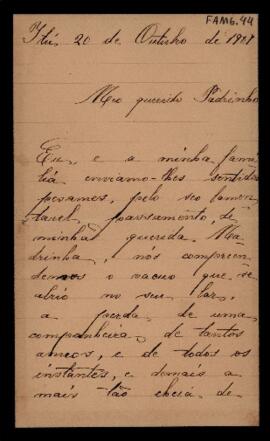 FAMG.44
Itú, 20 de Outubro de
Meo querido Padrinho
Eu, e a minha fami
lia enviamo-lhes sentidos
pesamos, pelo seo lamen
tavel passamento, de
minha querida Ma
drinha, nos compreen
demos o vacuo que se
abrio no seu lar,
a perda de uma
companheira, de tantos
annos, e de todos os
instantes, e demais a
mais tão cheia de